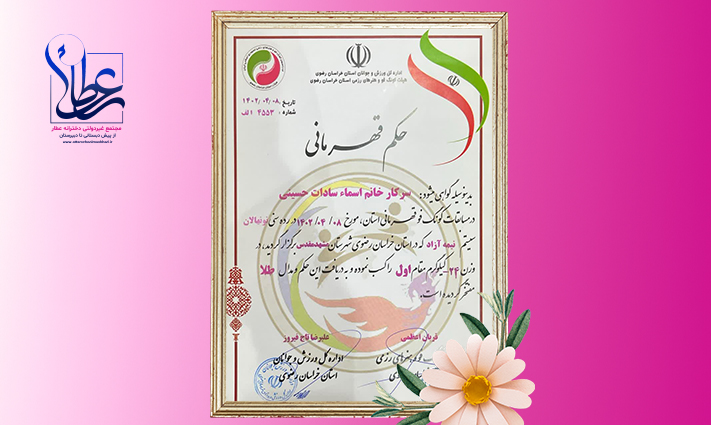 عطار
مجتمع غیردولتی دخترانه عطار
از پیش دبستانی تا دبیرستان
اداره کل ورزش و جوانان استان خراسان رضوی
هیات کونگ فو و هنرهای رزمی استان خراسان رضوی
تاریخ: ۱۴۰۲/۰۴/۰۸
شماره: ۴۵۵۳ الف
حکم قهرمانی
بدینوسیله گواهی میشود: سرکار خانم اسماء سادات حسینی
در مسابقات کونگ فو قهرمانی استان، مورخ ۱۴۰۲/۰۴/۰۸ در رده سنی نونهالان
سیستم نیمه آزاد که در استان خراسان رضوی شهرستان مشهدمقدس برگزار گردید، در
وزن ۲۴- کیلوگرم مقام اول را کسب نموده و به دریافت این حکم و مدال طلا
مفتخر گردیده است.
قربان اعظمی
علیرضا تاج فیروز
اداره کل ورزش و جوانان
استان خراسان رضوی